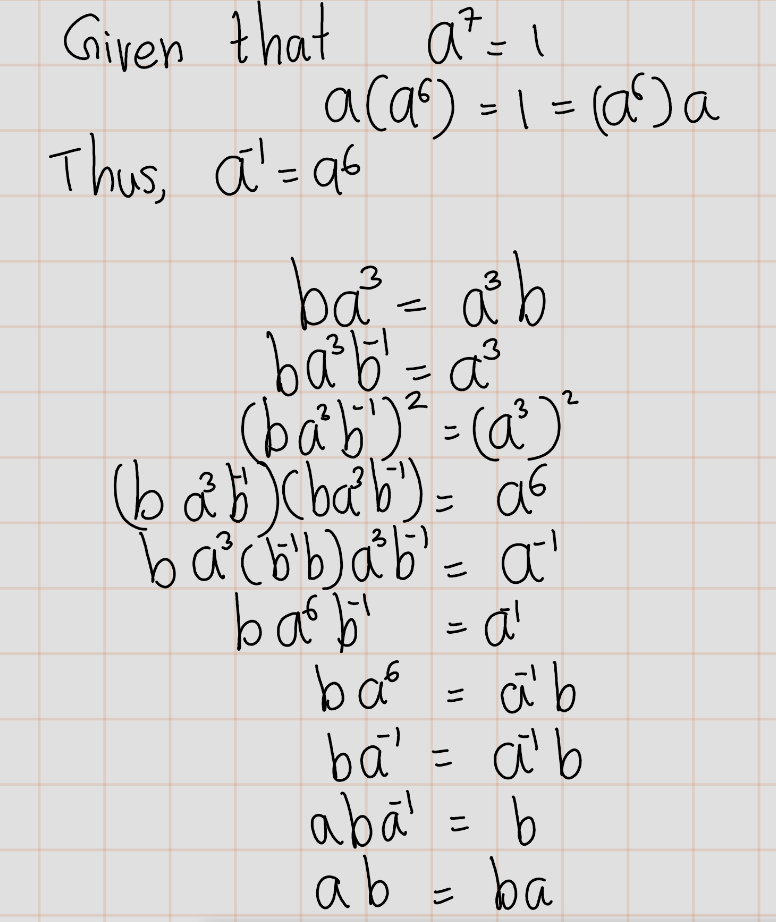 Given that a⁷ = 1
a(a⁶) = 1 = (a⁶)a
Thus, a⁻¹ = a⁶
ba³ = a³b
ba³b⁻¹ = a³
(ba³b⁻¹)² = (a³)²
(ba³b⁻¹)(ba³b⁻¹) = a⁶
ba³(b⁻¹b)a³b⁻¹ = a⁻¹
ba⁶b⁻¹ = a⁻¹
ba⁶ = a⁻¹b
ba⁻¹ = a⁻¹b
aba⁻¹ = b
ab = ba